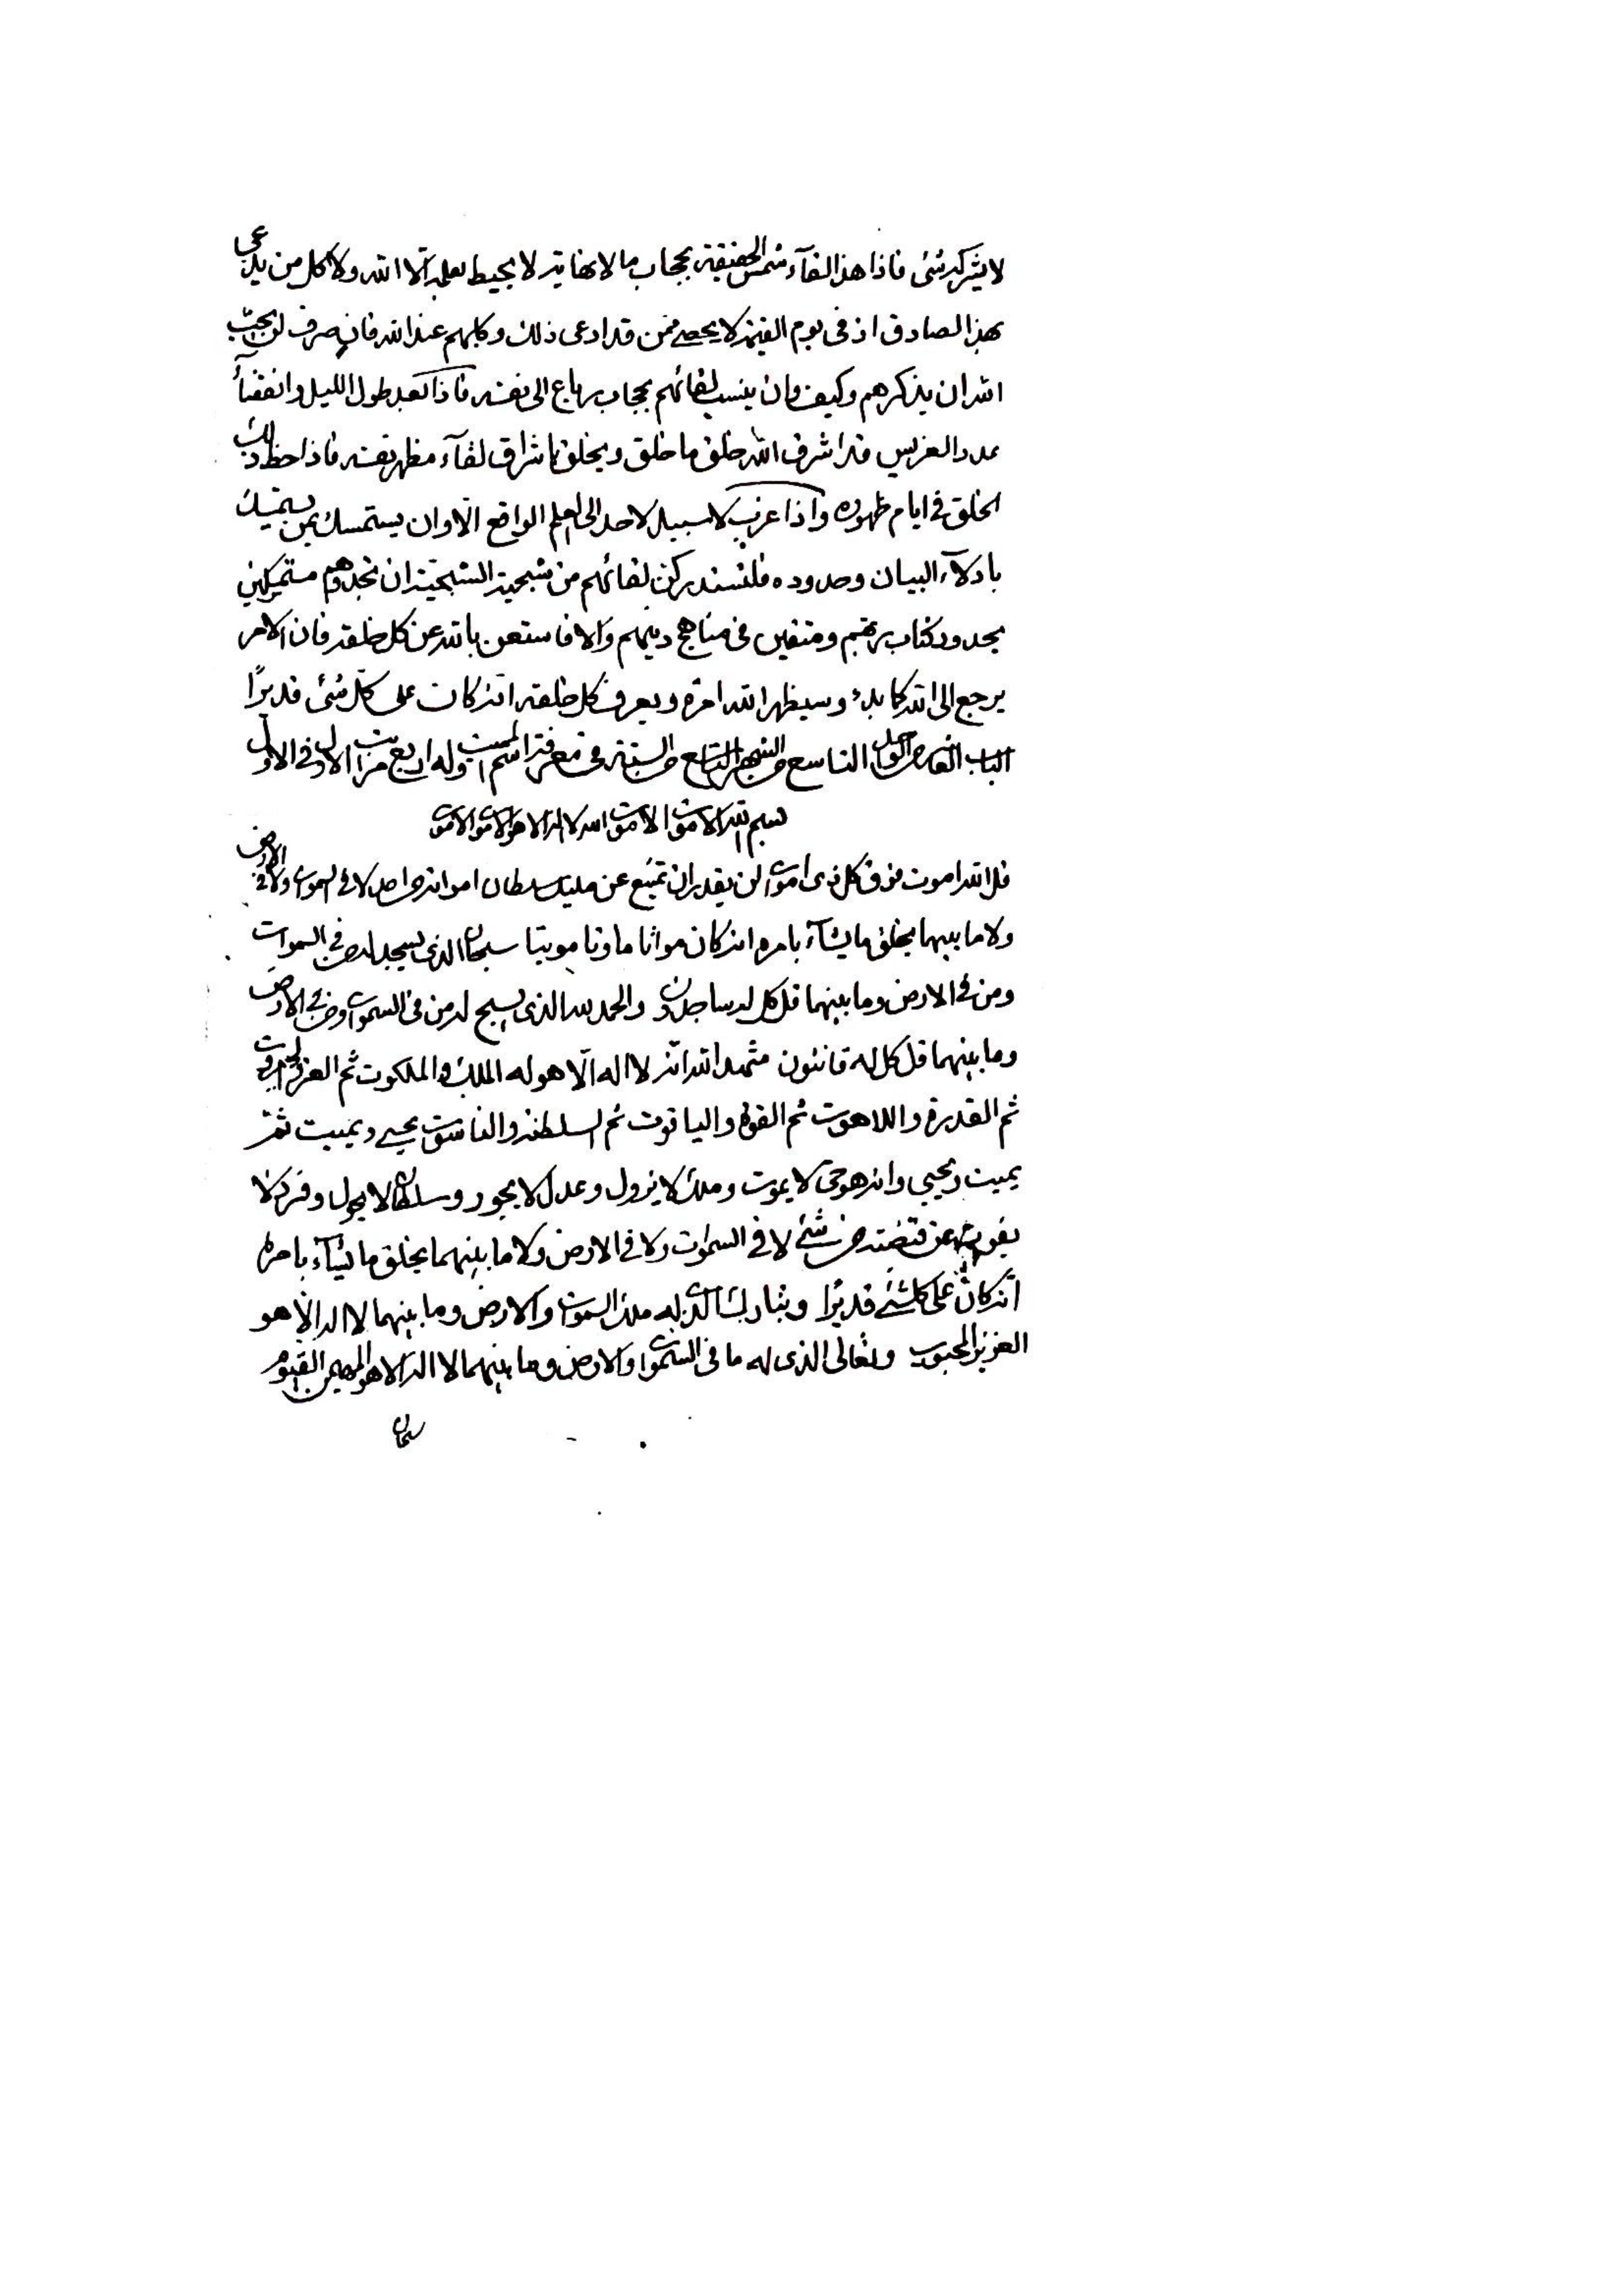 لا يشركه شئ فاذا هذا لقاء شمس الحقيقة بحجاب ما لا نهاية لا يحيط بعلمه الا الله ولا كل من يدعى
بهذا لصادق اذ فى يوم القيمة لا يحصى ممن قد ادعى ذلك وكلهم عند الله فان صرف لن يحب
الله ان يذكرهم وكيف وان ينسب لقائهم بحجاب رباع الى نفسه فاذا بعد طول الليل وانقضاء
عدد الغريس قد اشرق الله خلق ما خلق ويخلق باشراق لقاء مظهر نفسه فاذا حظ ذلك
الخلق فى ايام ظهوره واذا غرب لا سبيل لاحد الى العلم الواقع الا وان يستمسك بمن يستمسك
بادلاء البيان وحدوده فلتستدركن لقائهم من شبحية الشبحية ان تجدوهم مستمسكين
بحدود كتاب ربهم ومتقين فى مناهج دينهم والا فاستعن بالله عن كل خلقه فان الامر
يرجع الى الله كما بدء وسيظهر الله امره ويعرف كل خلقه انه كان على كل شئ قديرا
الباب العاشر من الواحد التاسع من الشهر التاسع من السنة فى معرفة اسم المميت وله اربع مراتب الاول فى الاول
بسم الله الاموت الاموت الله لا اله الا هو الاموت الاموت
قل الله اموت فوق كل ذى اموات لن يقدر ان يمتنع عن مليك سلطان امواته من احد لا فى السموات ولا فى الارض
ولا ما بينهما يخلق ما يشاء بامره انه كان مواتا ماوتا مويتا سبحان الذى يسجد له من فى السموات
ومن فى الارض وما بينهما قل كل له ساجدون والحمد لله الذى يسبح له من فى السموات ومن فى الارض
وما بينهما قل كل له قانتون شهد الله انه لا اله الا هو له الملك والملكوت ثم العز والجبروت
ثم القدرة واللاهوت ثم القوة والياقوت ثم السلطنة والناسوت يحيى ويميت ثم
يميت ويحيى وانه هو حى لا يموت وملك لا يزول وعدل لا يجور وسلطان لا يحول وفرد لا
يفوت عن قبضته من شئ لا فى السموات ولا فى الارض ولا ما بينهما يخلق ما يشاء بامره
انه كان على كلشئ قديرا وتبارك الذى له ملك السموات والارض وما بينهما لا اله الا هو
العزيز المحبوب وتعالى الذى له ما فى السموات والارض وما بينهما لا اله الا هو المهيمن القيوم
سبحان